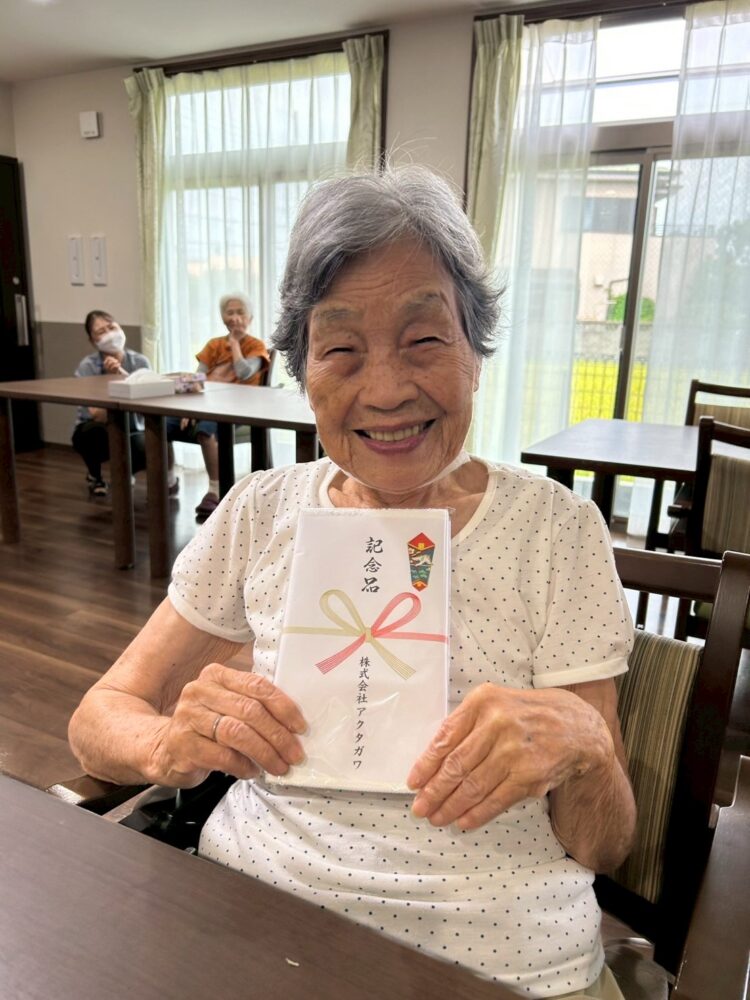 記念品
株式会社アクタガワ